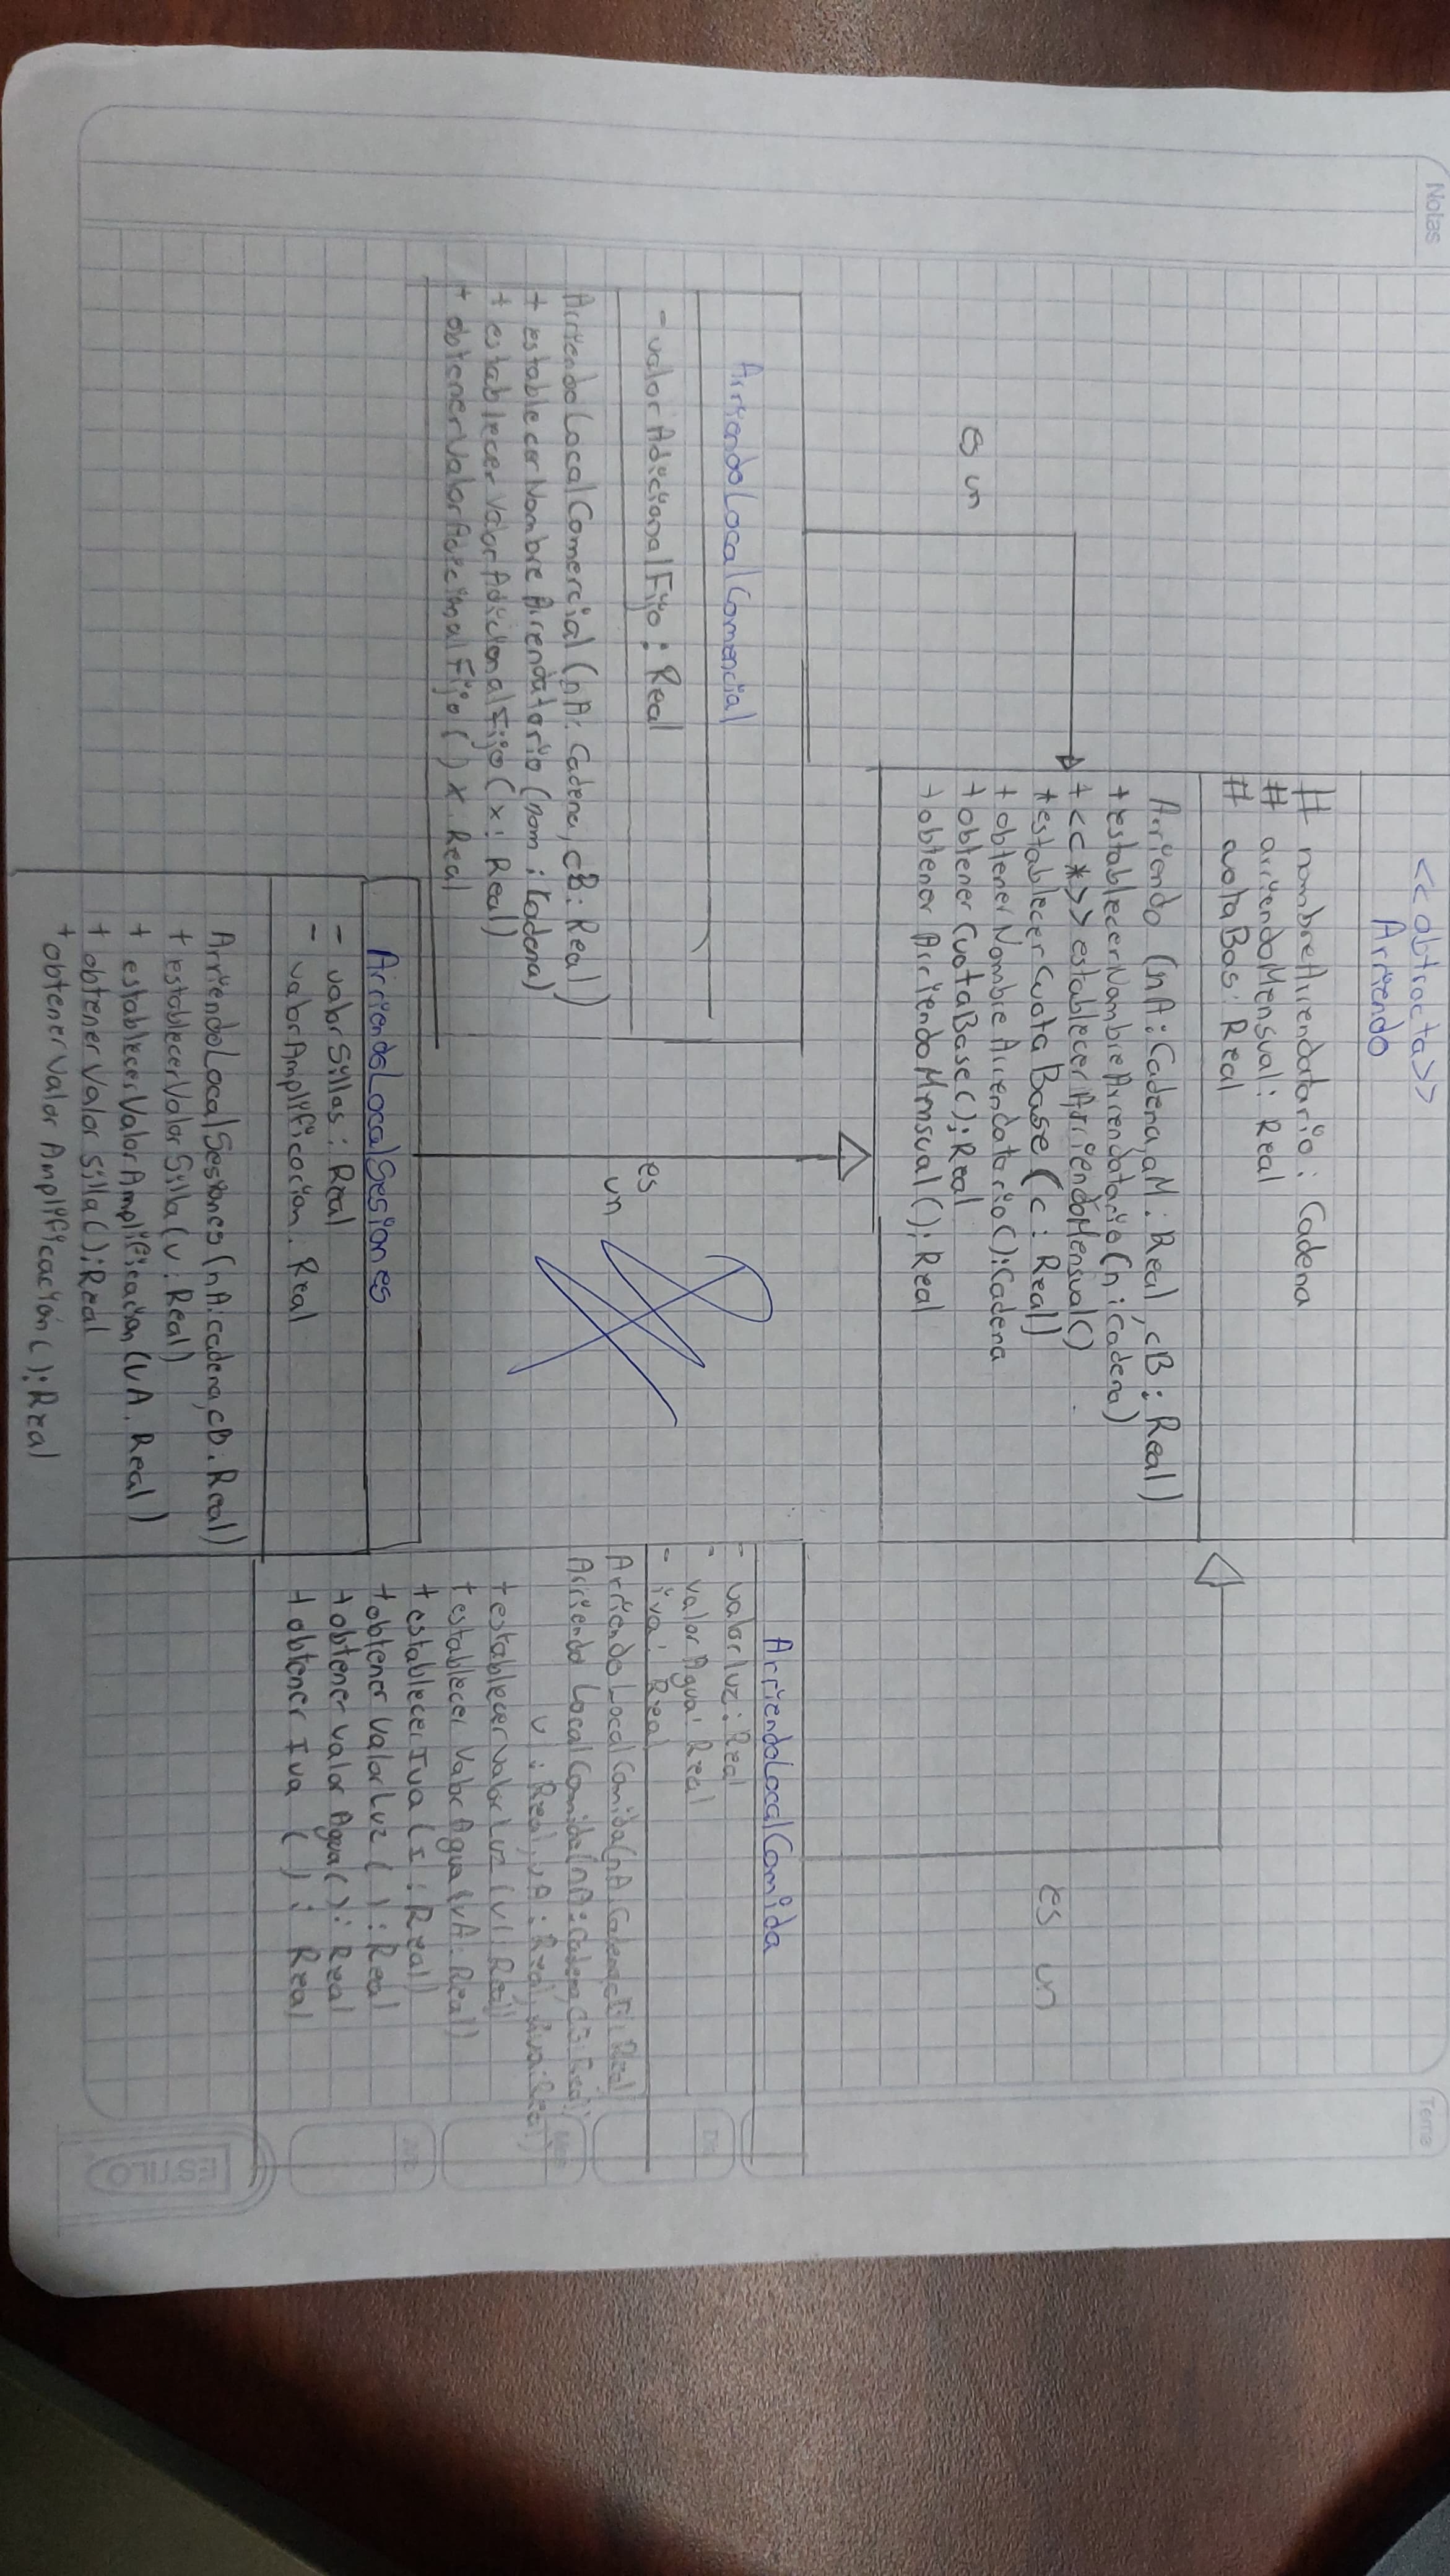 Notas
Tema
<<abtracta>>
Arriendo
# nombreArrendatario: Cadena
# arriendoMensual: Real
# cuotaBas: Real
Arriendo (nA: Cadena, aM: Real, cB: Real)
+ establecerNombreArrendatario (n: Cadena)
+ <<*>> establecerArriendoMensual()
+ establecerCuotaBase (c: Real)
+ obtenerNombreArrendatario(): Cadena
+ obtener CuotaBase(): Real
+ obtener ArriendoMensual(): Real
es un
es
un
es un
ArriendoLocalComercial
- valorAdicionalFijo: Real
ArriendoLocalComercial (nA: Cadena, cB: Real)
+ establecerNombreArrendatario (nom: Cadena)
+ establecerValorAdicionalFijo (x: Real)
+ obtenerValorAdicinalFijo() x Real
ArriendoLocalSesiones
- valorSillas: Real
- valorAmplificacion: Real
ArriendoLocalSesiones (nA: cadena, cB: Real)
+ establecerValorSilla (v: Real)
+ establecerValorAmplificacion (vA: Real)
+ obtenerValorSilla(): Real
+ obtenerValor Amplificación(): Real
ArriendoLocalComida
- valorluz: Real
- valorAgua: Real
- iva: Real
ArriendoLocalComida(nA: Real)
Arriendo LocalComida(nA: Cadena, cB: Real,
v: Real, vA: Real, iva: Real)
+ establecerValorLuz (vl: Real)
+ establecer ValorAgua (vA: Real)
+ establecerIva (I: Real)
+ obtener ValorLuz (): Real
+ obtener Valor Agua(): Real
+ obtener Iva (): Real
Día
Mes
Año
ESTILO